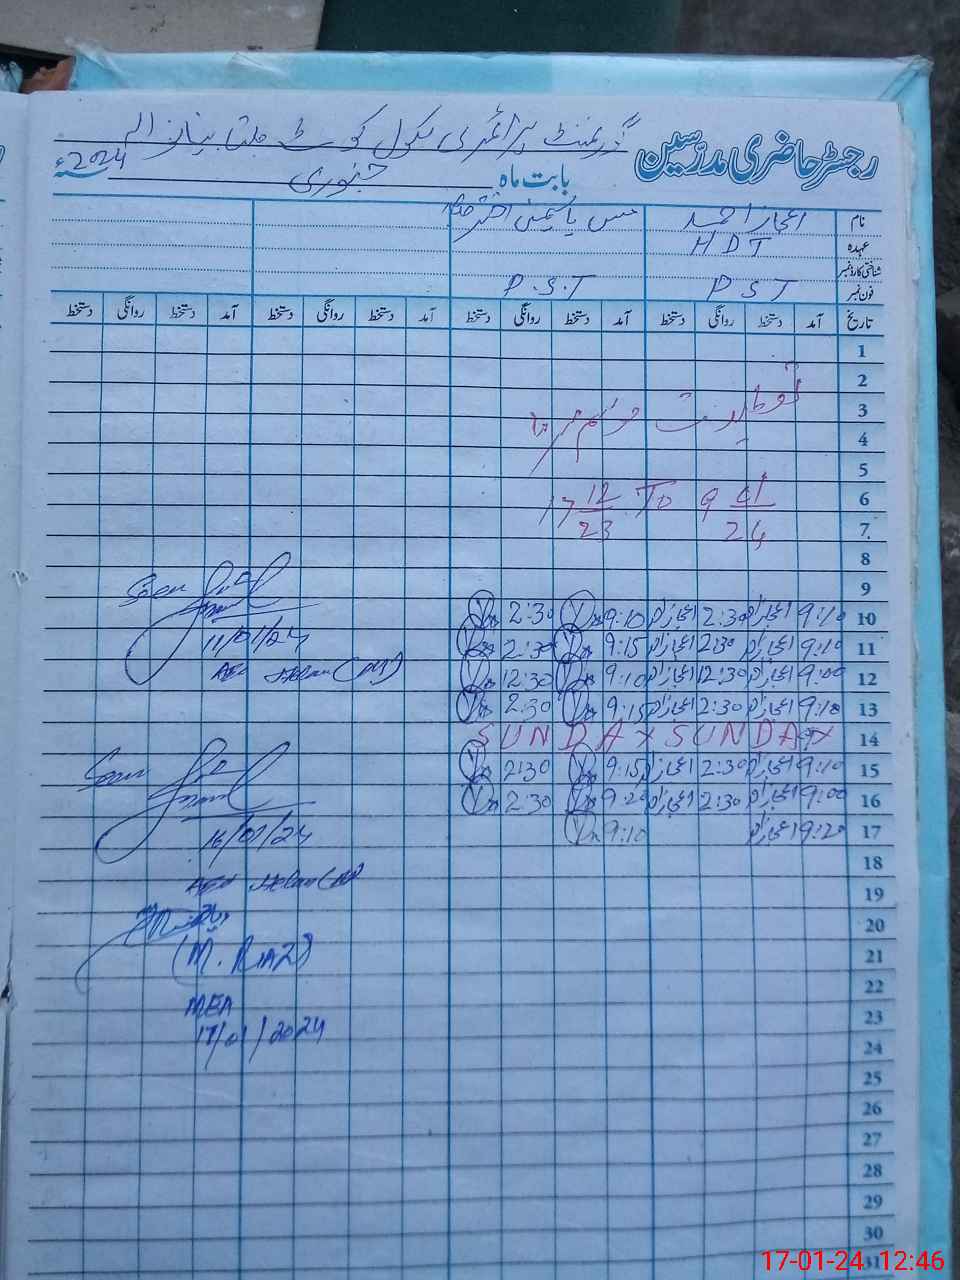 رجسٹر حاضری مدرسین گورنمنٹ پرائمری سکول کوٹ
بابت ماہ جنوری سنہ 2024ء
نام اعجاز احمد مس یاسمین اختر
عہدہ HDT
شناختی کارڈ نمبر
فون نمبر PST P.S.T
تاریخ آمد دستخط روانگی دستخط آمد دستخط روانگی دستخط آمد دستخط روانگی دستخط آمد دستخط روانگی دستخط
1
2
3 تعطیلات موسم سرما
4
5
6 17 12/23 To 9 01/24
7
8
9
10 9:10 اعجاز 2:30 اعجاز 9:10 2:30
11 9:10 اعجاز 2:30 اعجاز 9:15 2:30
12 9:00 اعجاز 12:30 اعجاز 9:10 12:30
13 9:10 اعجاز 2:30 اعجاز 9:15 2:30
14 SUNDAY SUNDAY
15 9:10 اعجاز 2:30 اعجاز 9:15 2:30
16 9:00 اعجاز 2:30 اعجاز 9:20 2:30
17 9:20 اعجاز 9:10
18
19
20
21
22
23
24
25
26
27
28
29
30
31
Seen
11/01/24
AEO
Seen
16/01/24
AEO
(M. RIAZ)
MEA
17/01/2024
17-01-24 12:46